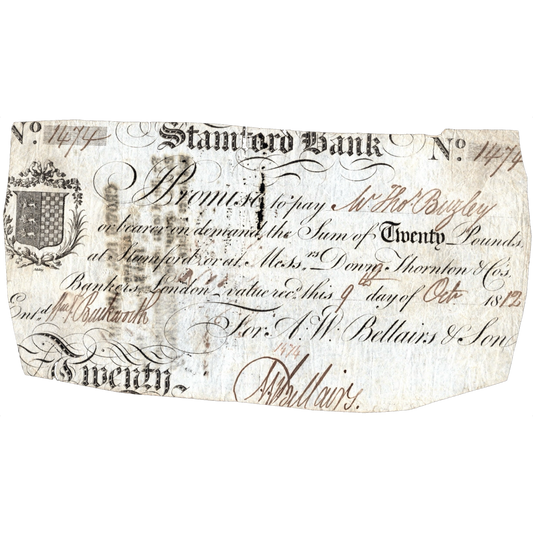 No. 1474 Stamford Bank No. 1474
I Promise to pay Mr. Thos. Buzley
or bearer on demand, the Sum of Twenty Pounds,
at Stamford or at Mess.rs Down, Thornton & Co's.
Bankers, London value recd. this 9th day of Oct 1812
Entd. Buckworth For A. W. Bellairs & Son
1474
Twenty